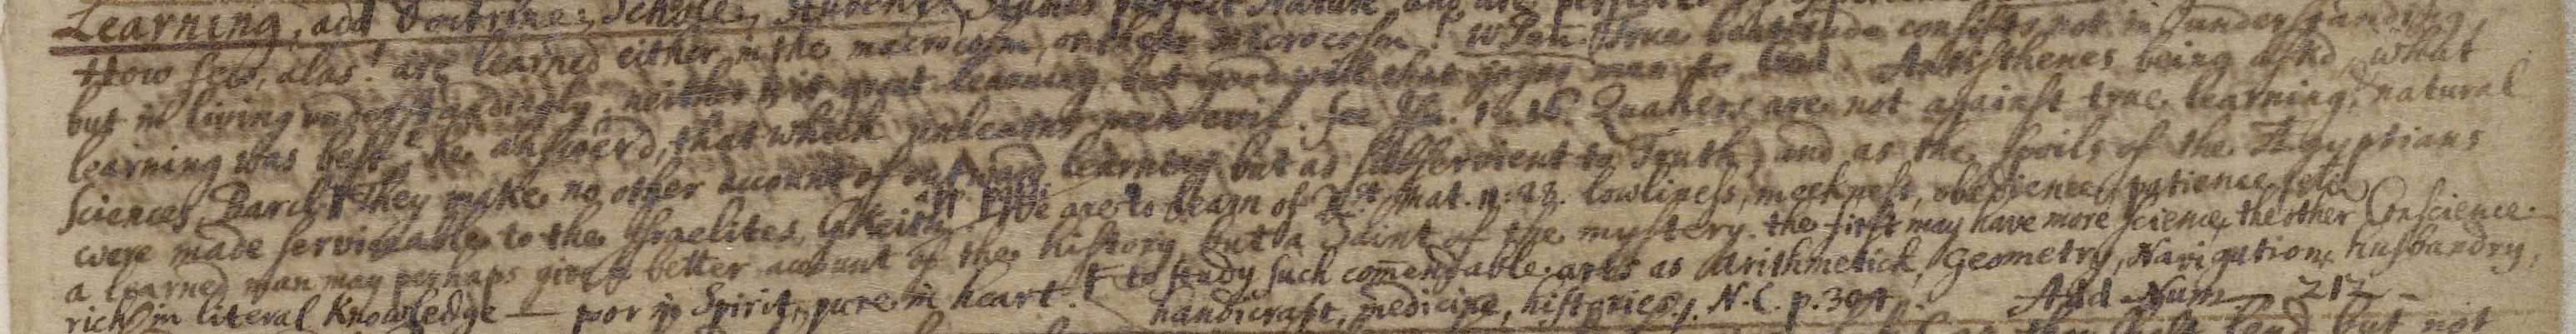 Learning, add Doctrine, Schole, Student.
How few, alas! are learned either in the macrocosm, or their microcosm! W Pen True beatitude consists not in understanding,
but in living understandingly, neither is it great learning but good will that joyns man to God Antisthenes being askd, what
learning was best? he answerd, that which unlearns men evil. see Is. 1. 16. Quakers are not against true learning, natural
sciences, Barcl. They make no other account of outward learning but as subservient to Truth, and as the spoils of the Ægyptians
were made serviceable to the Israelites, G Keith We are to learn of Xst Mat. 11. 28. lowliness, meekness, obedience patience
a learned man may perhaps give a better account of the history but a Saint of the mystery. the first may have more science, the other Conscience.
rich in literal knowledge — poor in Spirit, pure in heart. † to study such comendable arts as Arithmetick, Geometry, Navigation, husbandry,
handicraft, medicine, histories, N. C. p. Add Num 217